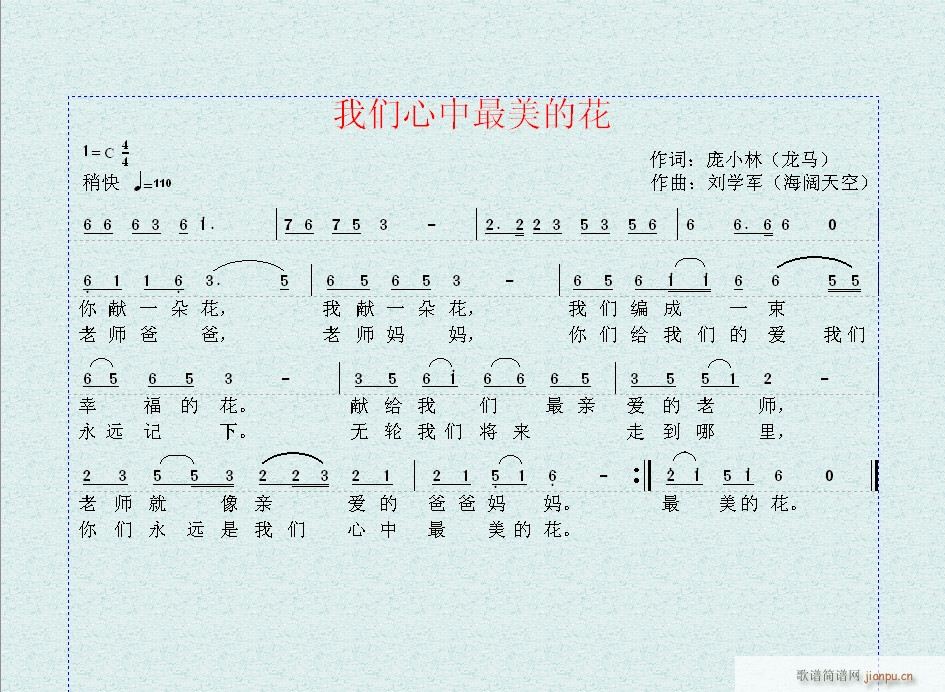 我们心中最美的花
1=C 4/4
作词：庞小林（龙马）
稍快 ♩=110
作曲：刘学军（海阔天空）
6 6 6 3 6 1. | 7 6 7 5 3 - | 2. 2 2 3 5 3 5 6 | 6 6. 6 6 0
6 1 1 6 3. 5 | 6 5 6 5 3 - | 6 5 6 1 1 6 6 5 5
你献一朵花， 我献一朵花， 我们编成 一束
老师爸爸， 老师妈妈， 你们给我们的爱 我们
6 5 6 5 3 - | 3 5 6 1 6 6 6 5 | 3 5 5 1 2 -
幸 福的花。 献给我 们 最亲 爱的老 师，
永远记 下。 无轮我们将来 走到哪里，
2 3 5 5 3 2 2 3 2 1 | 2 1 5 1 6 - :|| 2 1 5 1 6 0 ||
老师就 像亲 爱的 爸爸妈 妈。 最 美的花。
你们永远是我们 心中 最 美的花。
歌谱简谱网 jianpu.cn